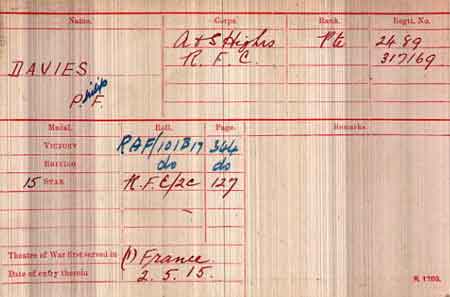 Name. Corps. Rank. Regtl. No.
A & S Highrs Pte 2489
DAVIES R.F.C. 317169
Philip F.
Medal. Roll. Page. Remarks.
VICTORY RAF/101B17 344
BRITISH do do
15 STAR R.F.C/2C 127
Theatre of War first served in (1) France
Date of entry therein 2.5.15.
K 1380.